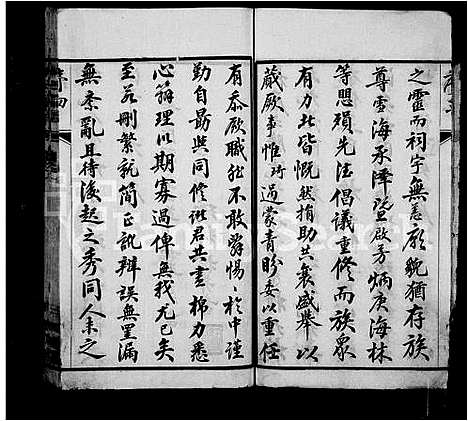 之靈而祠宇無恙廟貌猶存族
尊雪海承澤暨啟芳炳庚海林
等思顕先法倡議重修而族眾
有力北皆慨然捐助共襄盛舉以
蕆厥事惟珩過蒙青盼委以重任
有忝厥職然不敢辭惕惕於中謹
勤自勗與同修諸君共畫棉力悉
心籍理以期寡過俾無我尤已矣
至若刪繁就簡正訛辨誤無罣漏
無紊亂且待後起之秀同人未之